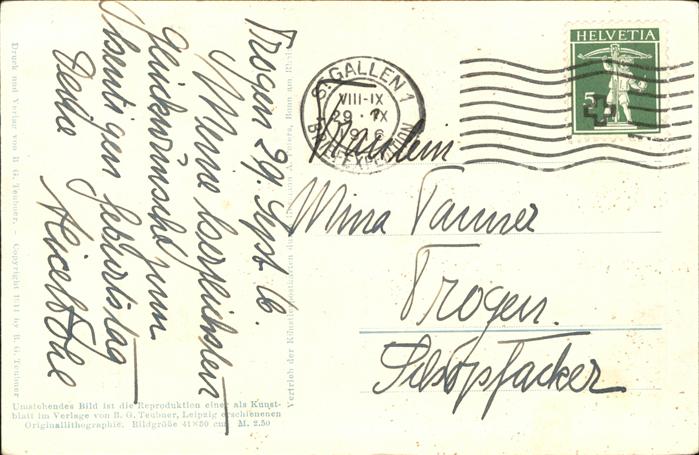 Trogen 29. Sept 16.
Meine herzlichsten
Glückwünsche zum
heutigen Geburtstag
Deine
Druck und Verlag von B. G. Teubner. Copyright 1911 by B. G. Teubner
Umstehendes Bild ist die Reproduktion einer als Kunst-
blatt im Verlage von B. G. Teubner, Leipzig erschienenen
Originallithographie. Bildgröße 41×50 cm M. 2.50
Vertrieb der Künstlerpostkarten durch
Bonn am Rhein
ST. GALLEN 1
VIII-IX
29. IX
1916
BRIEFEXPEDITION
HELVETIA
5
Fräulein
Mina Tanner
Trogen.
Schopfacker